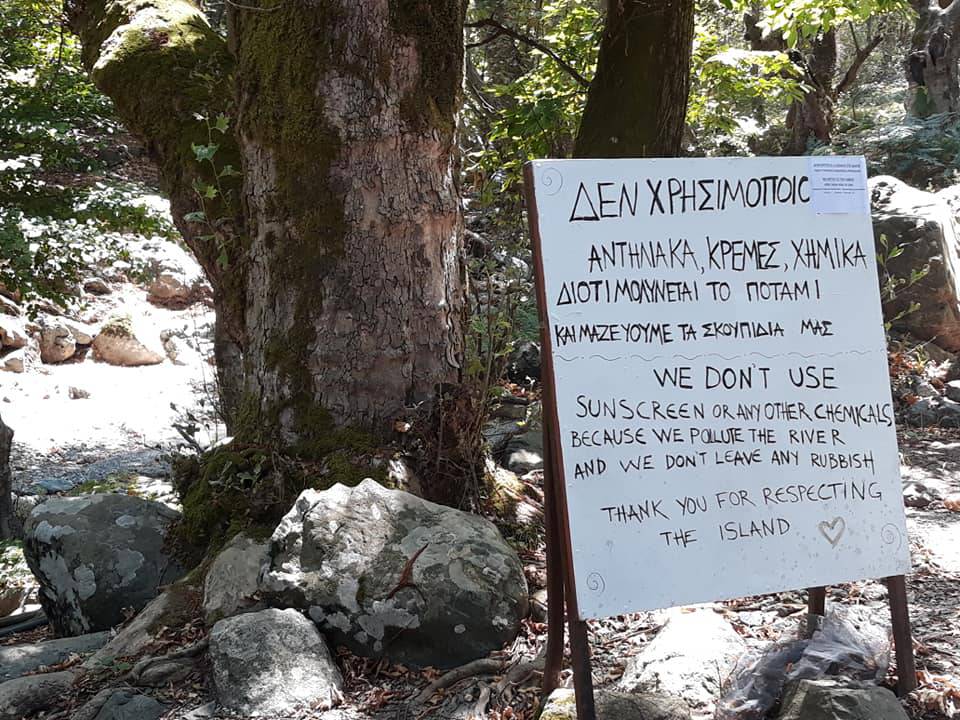 ΔΕΝ ΧΡΗΣΙΜΟΠΟΙΟ
ΑΝΤΗΛΙΑΚΑ, ΚΡΕΜΕΣ, ΧΗΜΙΚΑ
ΔΙΟΤΙ ΜΟΛΥΝΕΤΑΙ ΤΟ ΠΟΤΑΜΙ
ΚΑΙ ΜΑΖΕΥΟΥΜΕ ΤΑ ΣΚΟΥΠΙΔΙΑ ΜΑΣ
WE DON'T USE
SUNSCREEN OR ANY OTHER CHEMICALS,
BECAUSE WE POLLUTE THE RIVER
AND WE DON'T LEAVE ANY RUBBISH
THANK YOU FOR RESPECTING
THE ISLAND